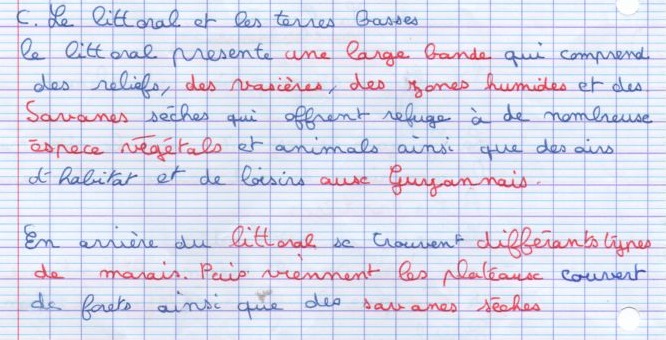 C. Le littoral et les terres basses
le littoral presente une large bande qui comprend
des reliefs, des vasières, des zones humides et des
Savanes sèches qui offrent refuge à de nombreuse
éspece végétals et animals ainsi que des airs
d'habitat et de loisirs aux Guyannais.
En arrière du littoral se trouvent différants types
de marais. Puis viennent les plateaux couvert
de forets ainsi que des savanes sèches